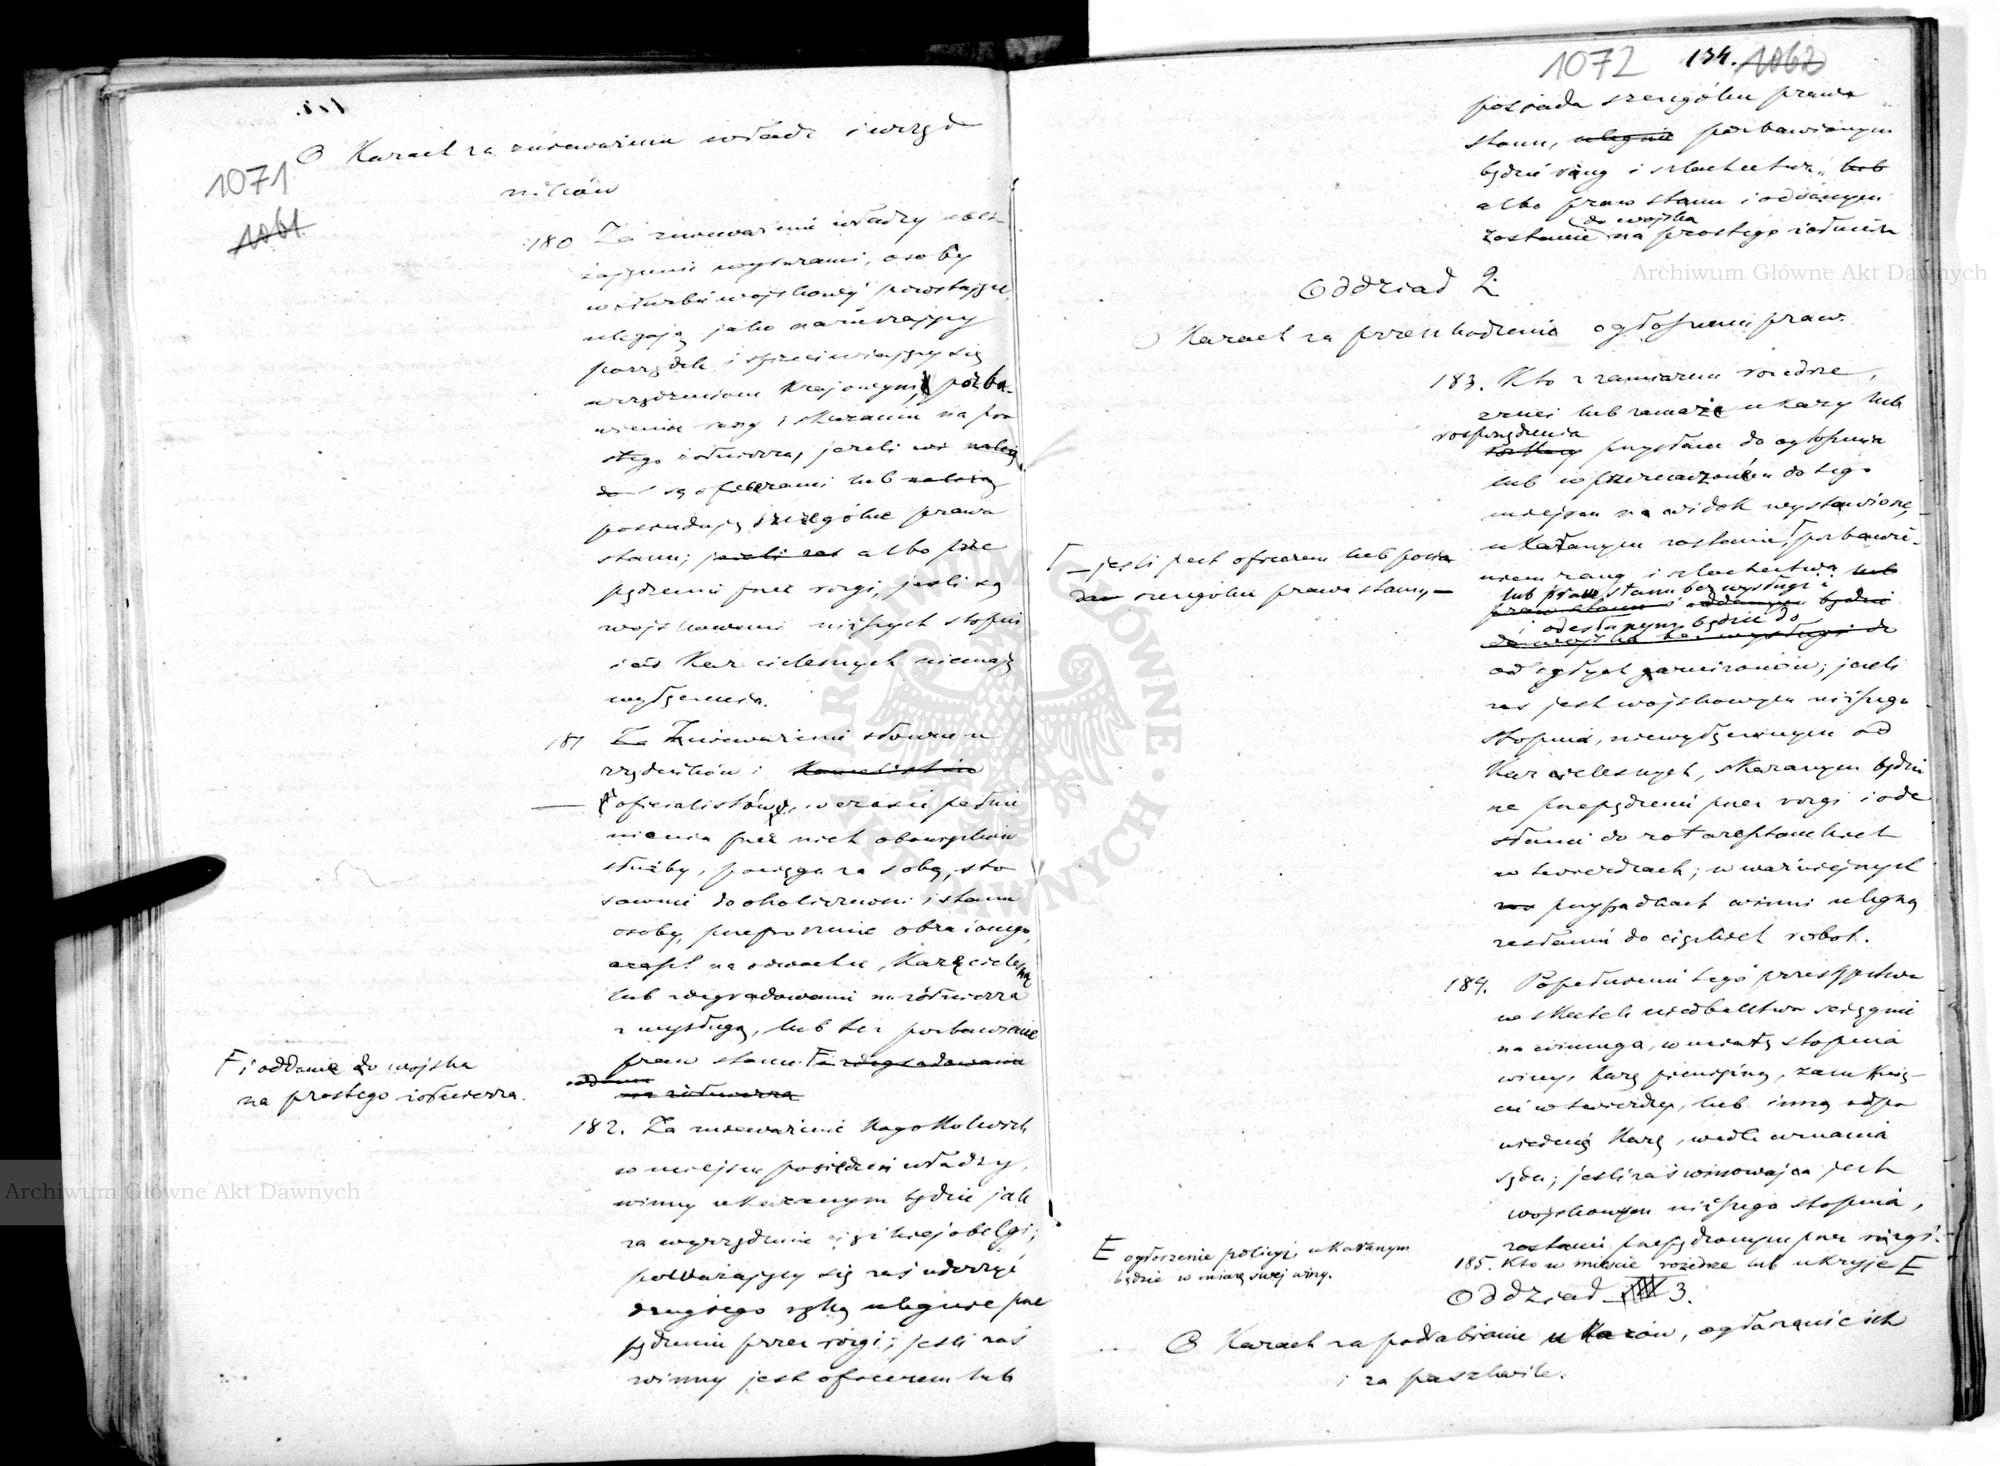 1071
1061
O Karach za znieważenie władz i urzęd
ników
180 Za znieważenie władzy obel-
żającemi wyrazami, osoby
w służbie wojskowej pozostające,
ulegają jako naruszający
porządek i sprzeciwiający się
urządzeniom Krajowym, pozba-
wieniu rangi i skazaniu na pro
stego żołnierza, jeżeli
są oficerami lub
posiadają szczególne prawa
stanu; jeżeli zaś albo prze
pędzeniu przez rózgi, jeśli są
wojskowemi niższych stopni
i od Kar cielesnych niemają
wyłączenia.
181 Za Znieważenie słowne u
rzędników i
oficialistów, w czasie pełnie
nienia przez nich obowiązków
służby, pociąga za sobą, sto
sownie do okoliczności i stanu
osoby, przeproszenie obrażonego,
areszt na odwachu, Karę cielesną
lub zdegradowanie na żołnierza
z wysługą, lub też pozbawienie
praw stanu i zdegradowanie
oddanie
na żołnierza
F i oddanie do wojska
na prostego żołnierza.
182. Za znieważenie Kogokolwiek
w miejscu posiedzeń władzy,
winny ukaranym będzie jak
za wyrządzenie ciężkiej obelgi;
poważający się zaś uderzyć
drugiego ręką ulegnie prze
pędzeniu przez rózgi; jeśli zaś
winny jest oficerem lub
1072 134. 1062
posiada szczególne prawa
stanu, ulegnie pozbawionym
będzie rang i szlachectwa lub
albo praw stanu i oddanym
do wojska
zostanie na prostego żołnierza
Oddział 2.
O Karach za przeszkodzenie ogłoszeniu praw.
183. Kto z zamiarem rozedrze,
zrzuci lub zamaże ukazy lub
rozporządzenia
rozkazy przysłane do ogłoszenia
lub w przeznaczonem do tego
miejscu na widok wystawione,
ukaranym zostanie, pozbawie-
niem rang i szlachectwa lub
lub praw stanu bez wysługi i
praw stanu i oddanym będzie
i odesłanym będzie do
do wojska bez wysługi do
odległych garnizonów; jeżeli
zaś jest wojskowym niższego
stopnia, niewyłączonym od
Kar cielesnych, skazanym będzie
na przepędzenie przez rózgi i ode
słanie do rot aresztanckich
w twierdzach; w ważniejszych
zaś przypadkach winni ulegną
zesłaniu do ciężkich robot.
Γ – jeśli jest oficerem lub posia
da szczególne prawa stanu, –
184. Popełnienie tego przestępstwa
w skutek niedbalstwa ściągnie
na winnego, w miarę stopnia
winy, Karę pieniężną, zamknię-
cie w twierdzy, lub inną odpo
wiednią Karę, wedle uznania
sądu; jeśli zaś winowajca jest
wojskowym niższego stopnia,
zostanie przepędzonym przez rózgi.
185. Kto w mieście rozedrze lub ukryje E
E ogłoszenie policyi, ukaranym
będzie w miarę swej winy.
Oddział 3.
O Karach za podrabianie ukazów, ogłaszanie ich
i za paszkwile.
Archiwum Główne Akt Dawnych
Archiwum Główne Akt Dawnych
ARCHIWUM GŁÓWNE AKT DAWNYCH